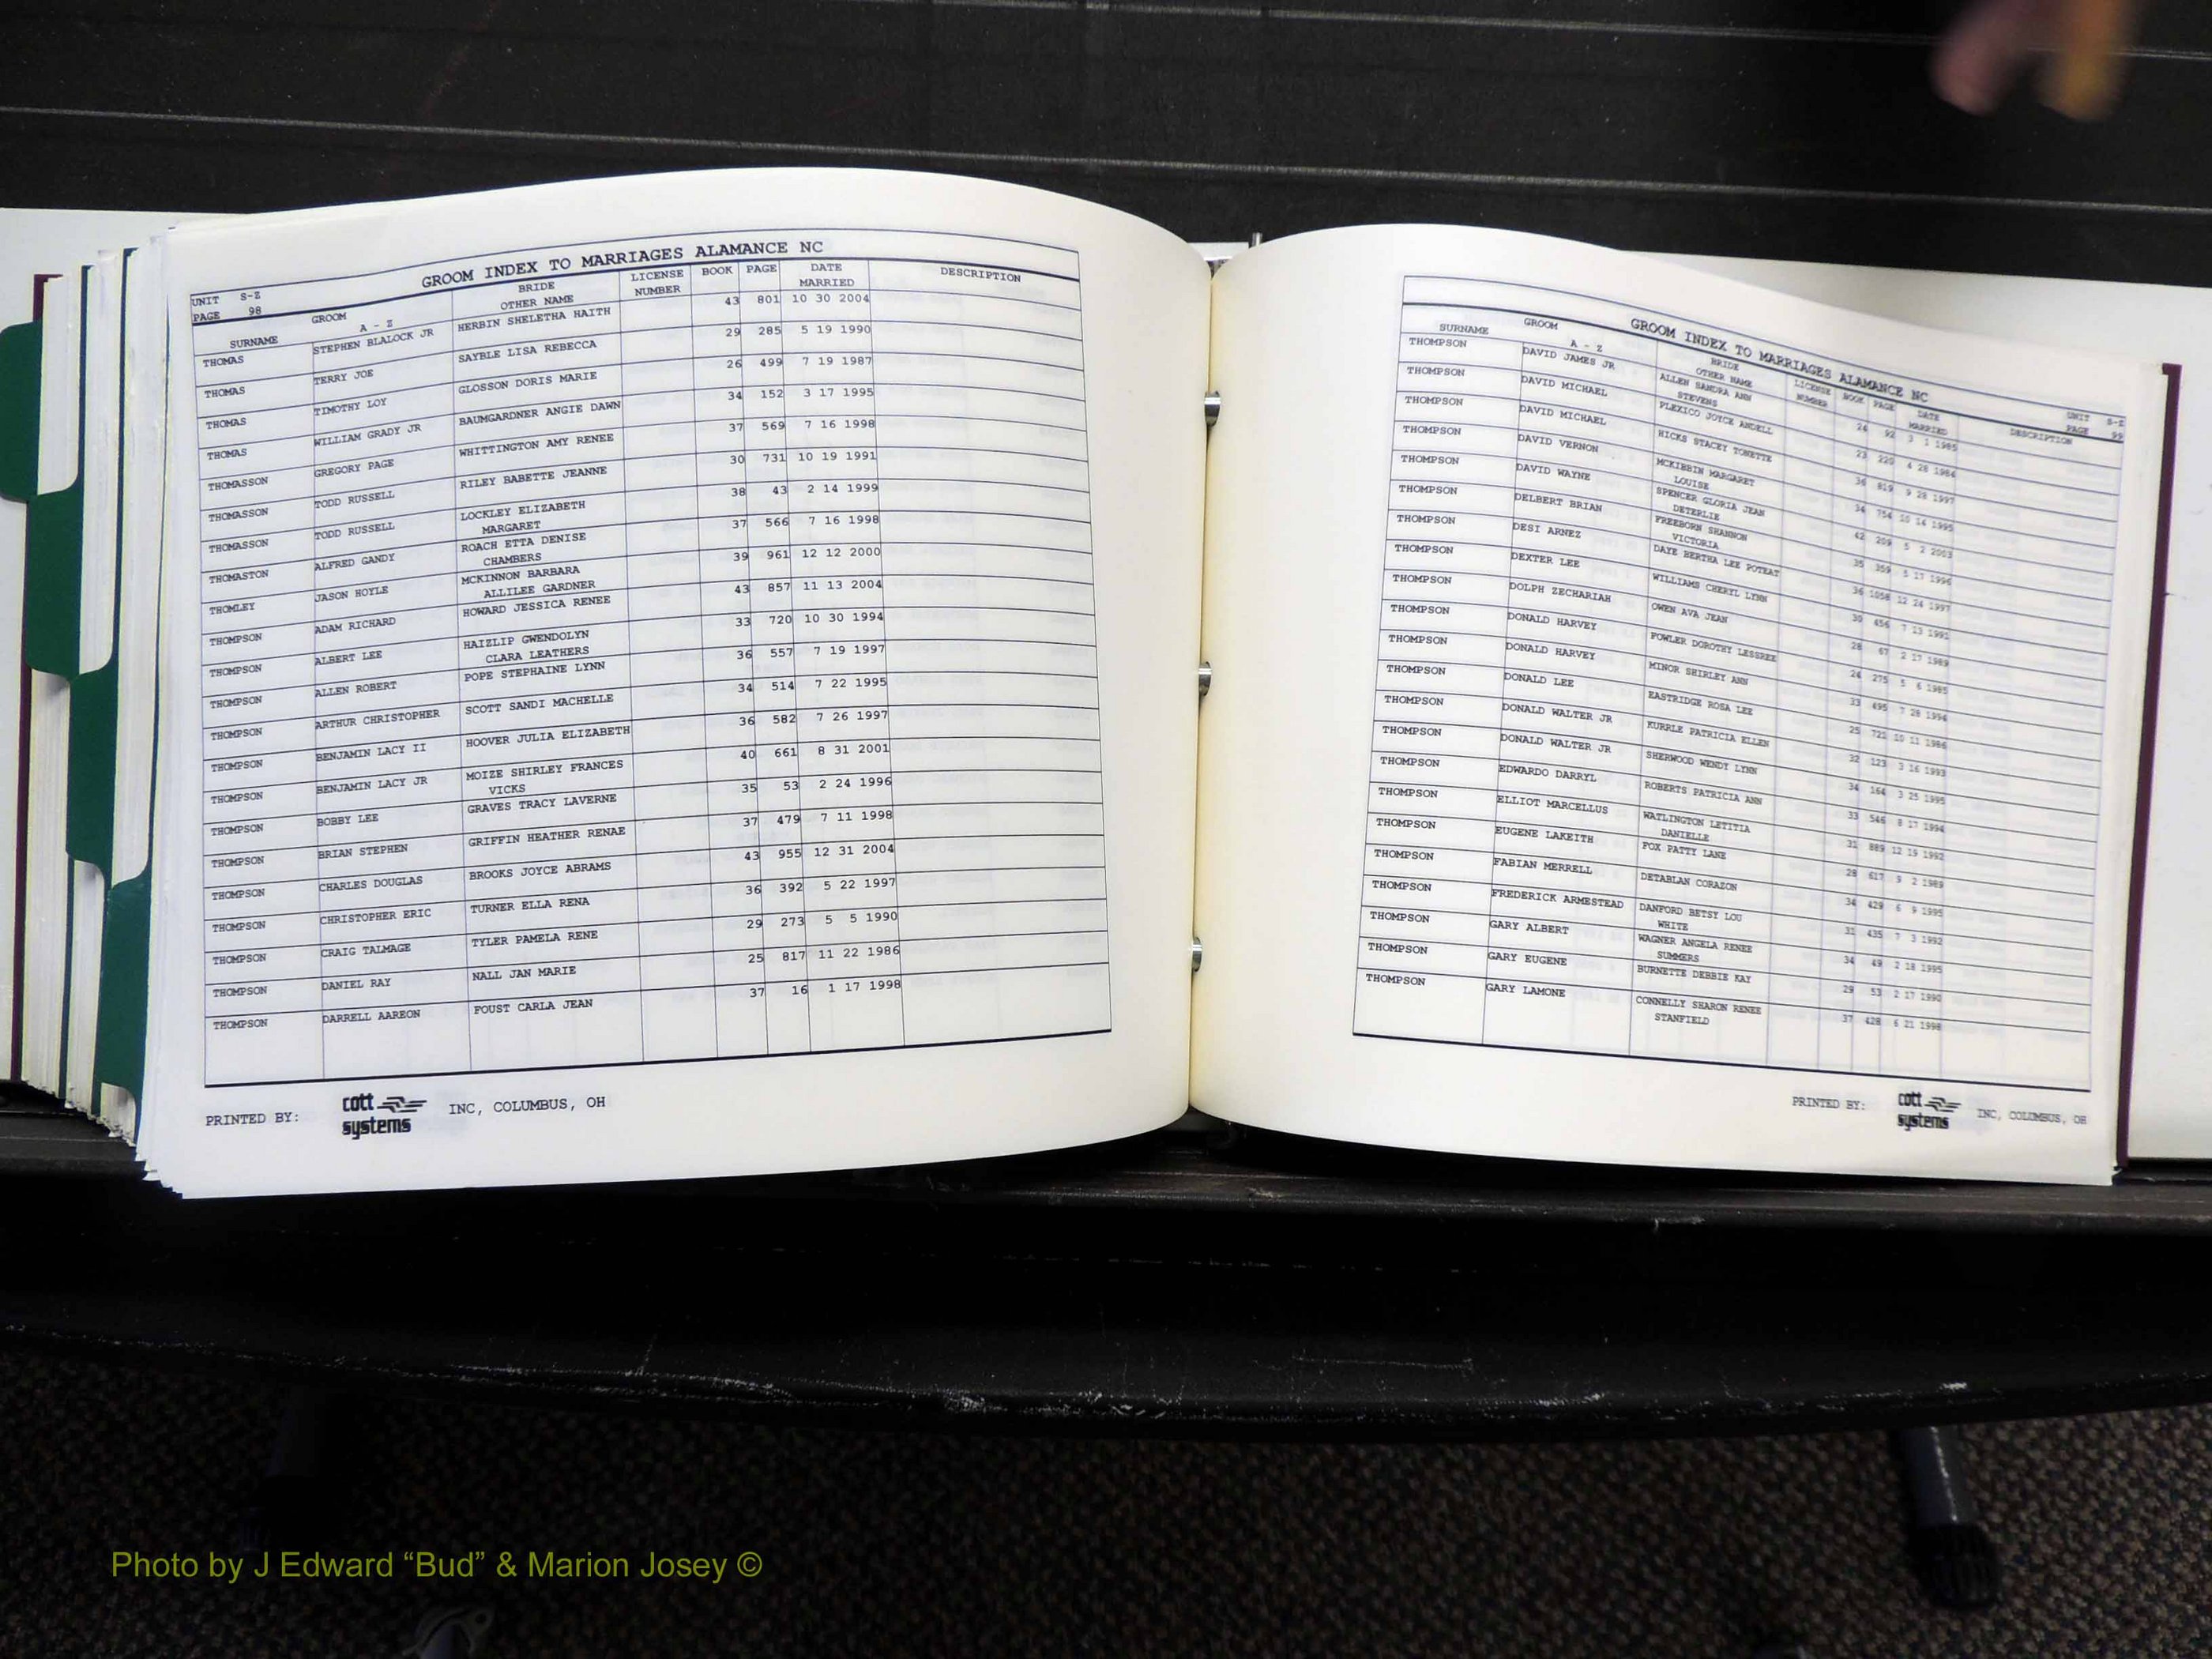 GROOM INDEX TO MARRIAGES ALAMANCE NC
UNIT S-Z
PAGE 98
SURNAME GROOM A - Z BRIDE OTHER NAME LICENSE NUMBER BOOK PAGE DATE MARRIED DESCRIPTION
THOMAS STEPHEN BLALOCK JR HERBIN SHELETHA HAITH 43 801 10 30 2004
THOMAS TERRY JOE SAYBLE LISA REBECCA 29 285 5 19 1990
THOMAS TIMOTHY LOY GLOSSON DORIS MARIE 26 499 7 19 1987
THOMAS WILLIAM GRADY JR BAUMGARDNER ANGIE DAWN 34 152 3 17 1995
THOMASSON GREGORY PAGE WHITTINGTON AMY RENEE 37 569 7 16 1998
THOMASSON TODD RUSSELL RILEY BABETTE JEANNE 30 731 10 19 1991
THOMASSON TODD RUSSELL LOCKLEY ELIZABETH 38 43 2 14 1999
MARGARET
THOMASTON ALFRED GANDY ROACH ETTA DENISE 37 566 7 16 1998
CHAMBERS
THOMLEY JASON HOYLE MCKINNON BARBARA 39 961 12 12 2000
ALLILEE GARDNER
THOMPSON ADAM RICHARD HOWARD JESSICA RENEE 43 857 11 13 2004
THOMPSON ALBERT LEE HAIZLIP GWENDOLYN 33 720 10 30 1994
CLARA LEATHERS
THOMPSON ALLEN ROBERT POPE STEPHAINE LYNN 36 557 7 19 1997
THOMPSON ARTHUR CHRISTOPHER SCOTT SANDI MACHELLE 34 514 7 22 1995
THOMPSON BENJAMIN LACY II HOOVER JULIA ELIZABETH 36 582 7 26 1997
THOMPSON BENJAMIN LACY JR MOIZE SHIRLEY FRANCES 40 661 8 31 2001
VICKS
THOMPSON BOBBY LEE GRAVES TRACY LAVERNE 35 53 2 24 1996
THOMPSON BRIAN STEPHEN GRIFFIN HEATHER RENAE 37 479 7 11 1998
THOMPSON CHARLES DOUGLAS BROOKS JOYCE ABRAMS 43 955 12 31 2004
THOMPSON CHRISTOPHER ERIC TURNER ELLA RENA 36 392 5 22 1997
THOMPSON CRAIG TALMAGE TYLER PAMELA RENE 29 273 5 5 1990
THOMPSON DANIEL RAY NALL JAN MARIE 25 817 11 22 1986
THOMPSON DARRELL AAREON FOUST CARLA JEAN 37 16 1 17 1998
PRINTED BY: cott systems INC, COLUMBUS, OH
GROOM INDEX TO MARRIAGES ALAMANCE NC
UNIT S-Z
PAGE 99
SURNAME GROOM A - Z BRIDE OTHER NAME LICENSE NUMBER BOOK PAGE DATE MARRIED DESCRIPTION
THOMPSON DAVID JAMES JR ALLEN SANDRA ANN 24 92 3 1 1985
STEVENS
THOMPSON DAVID MICHAEL PLEXICO JOYCE ANDELL 23 220 4 28 1984
THOMPSON DAVID MICHAEL HICKS STACEY TONETTE 36 819 9 28 1997
THOMPSON DAVID VERNON MCKIBBIN MARGARET 34 754 10 14 1995
LOUISE
THOMPSON DAVID WAYNE SPENCER GLORIA JEAN 42 209 5 2 2003
DETERLIE
THOMPSON DELBERT BRIAN FREEBORN SHANNON 35 359 5 17 1996
VICTORIA
THOMPSON DESI ARNEZ DAYE BERTHA LEE POTEAT 36 1058 12 24 1997
THOMPSON DEXTER LEE WILLIAMS CHERYL LYNN 30 456 7 13 1991
THOMPSON DOLPH ZECHARIAH OWEN AVA JEAN 28 67 2 17 1989
THOMPSON DONALD HARVEY FOWLER DOROTHY LESSREE 24 275 5 6 1985
THOMPSON DONALD HARVEY MINOR SHIRLEY ANN 33 495 7 28 1994
THOMPSON DONALD LEE EASTRIDGE ROSA LEE 25 721 10 11 1986
THOMPSON DONALD WALTER JR KURRLE PATRICIA ELLEN 32 123 3 16 1993
THOMPSON DONALD WALTER JR SHERWOOD WENDY LYNN 34 164 3 25 1995
THOMPSON EDWARDO DARRYL ROBERTS PATRICIA ANN 33 546 8 17 1994
THOMPSON ELLIOT MARCELLUS WATLINGTON LETITIA 31 889 12 19 1992
DANIELLE
THOMPSON EUGENE LAKEITH FOX PATTY LANE 28 617 9 2 1989
THOMPSON FABIAN MERRELL DETABLAN CORAZON 34 429 6 9 1995
THOMPSON FREDERICK ARMESTEAD DANFORD BETSY LOU 31 435 7 3 1992
WHITE
THOMPSON GARY ALBERT WAGNER ANGELA RENEE 34 49 2 18 1995
SUMMERS
THOMPSON GARY EUGENE BURNETTE DEBBIE KAY 29 53 2 17 1990
THOMPSON GARY LAMONE CONNELLY SHARON RENEE 37 428 6 21 1998
STANFIELD
PRINTED BY: cott systems INC, COLUMBUS, OH
Photo by J Edward “Bud” & Marion Josey ©